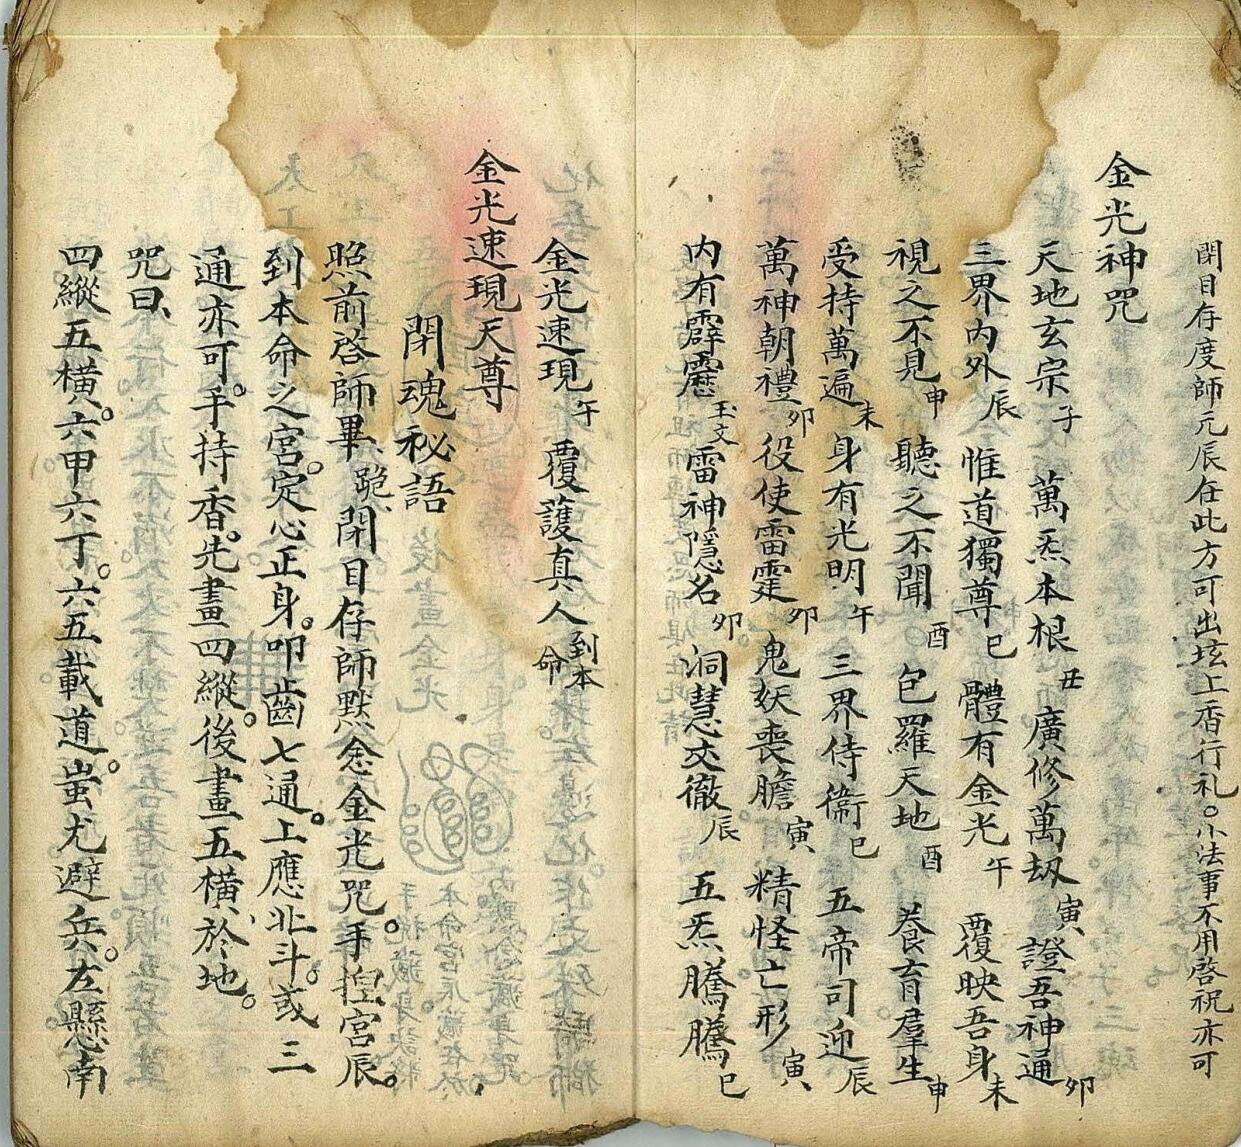 閉目存度師元辰在此方可出坛上香行礼。小法事不用啓祝亦可
金光神咒
天地玄宗子 萬炁本根丑 廣修萬劫寅 證吾神通卯
三界内外辰 惟道獨尊巳 體有金光午 覆映吾身未
視之不見申 聽之不聞酉 包羅天地酉 養育羣生申
受持萬遍未 身有光明午 三界侍衞巳 五帝司迎辰
萬神朝禮卯 役使雷霆卯 鬼妖喪膽寅 精怪亡形寅
内有霹靂玉文 雷神隱名卯 洞慧交徹辰 五炁騰騰巳
金光速現午 覆護真人到本命
金光速現天尊
閉魂秘語
照前啓師畢、跪閉目存師默念金光咒。手揑宮辰。
到本命之宮。定心正身。叩齒七通。上應北斗。或三
通亦可。手持香。先畫四縱。後畫五橫、於地。
咒曰、
四縱五橫。六甲六丁。六五載道。蚩尤避兵。左懸南